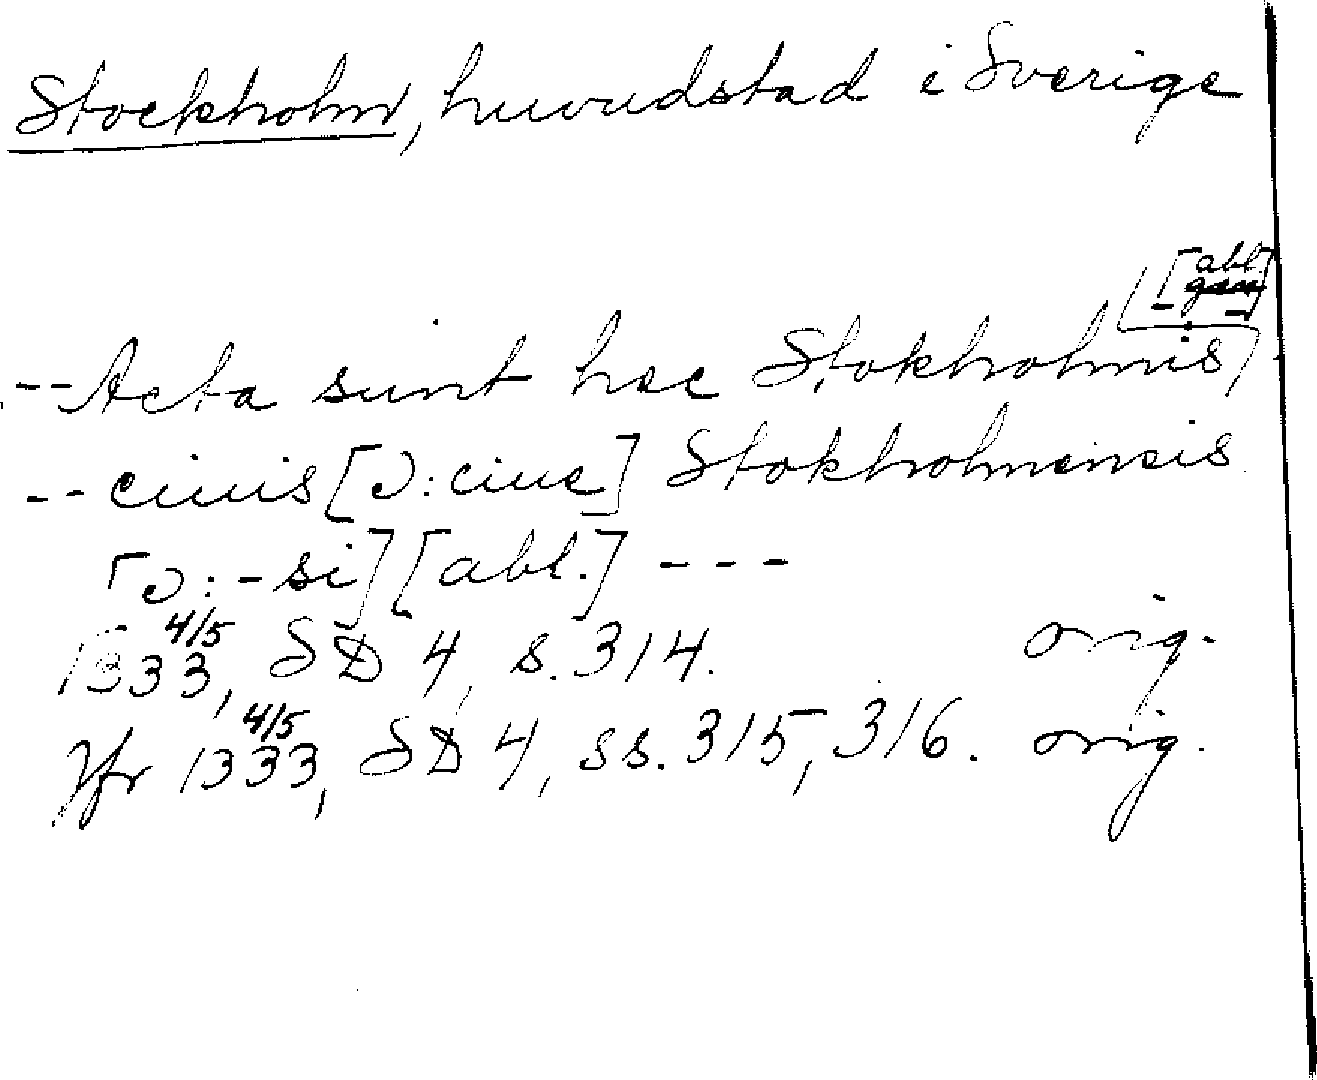 Stockholm, huvudstad i Sverige
[abl]
--Acta sunt hec Stokholmis,
-- ciuis [ɔ: ciue] Stokholmensis
[ɔ: -si] [abl.] ---
1333, 4/5 SD 4, s. 314. orig.
Jfr 1333, 4/5 SD 4, ss. 315, 316. orig.